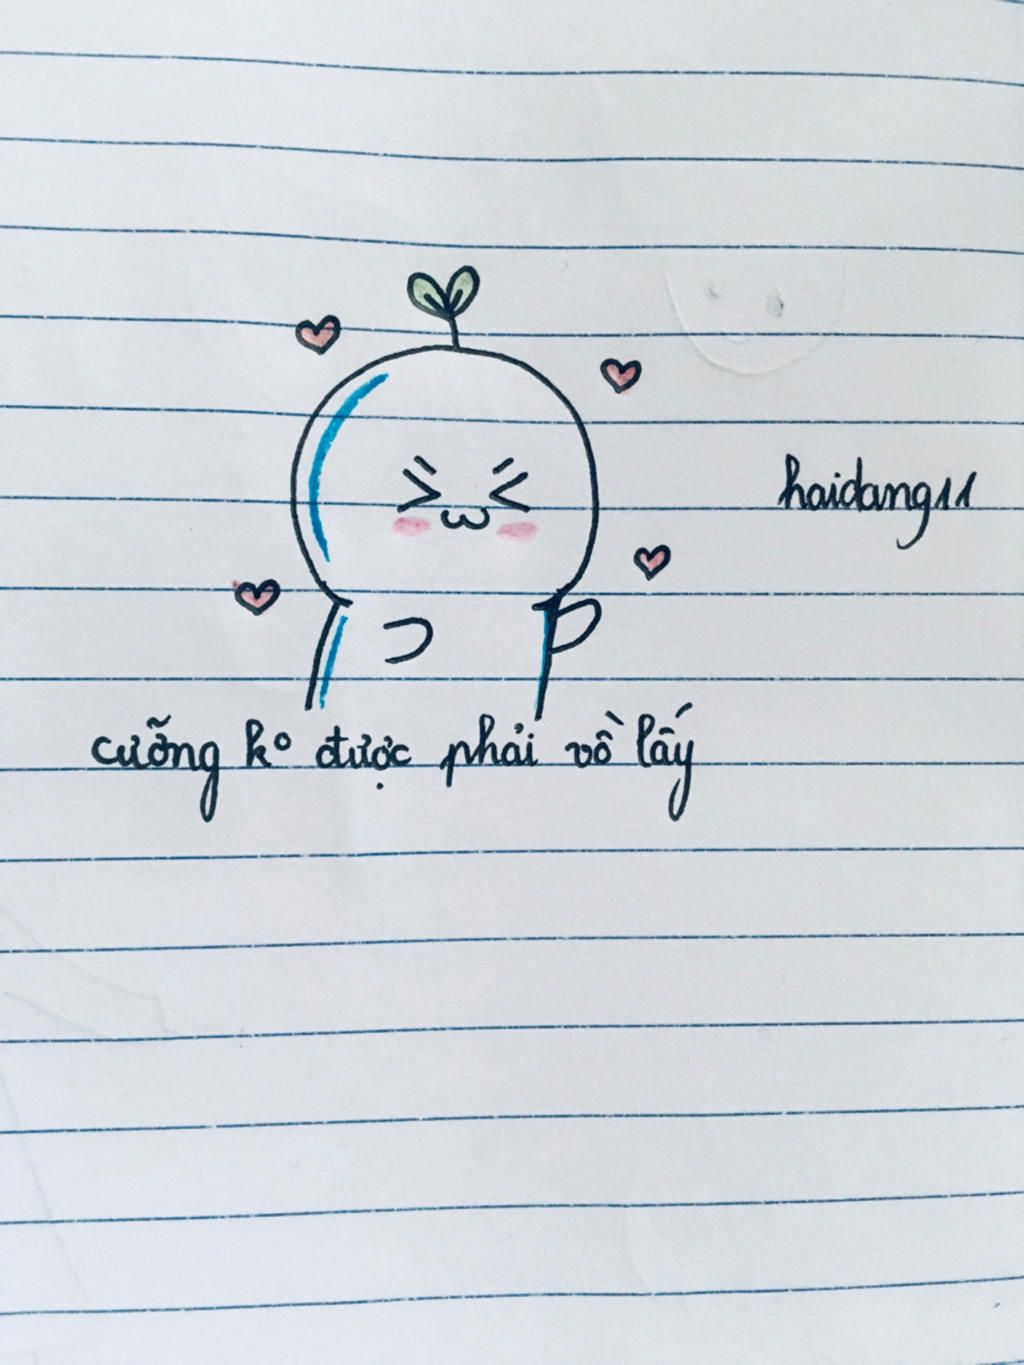 haidang11
cưỡng k° được phải vồ lấy